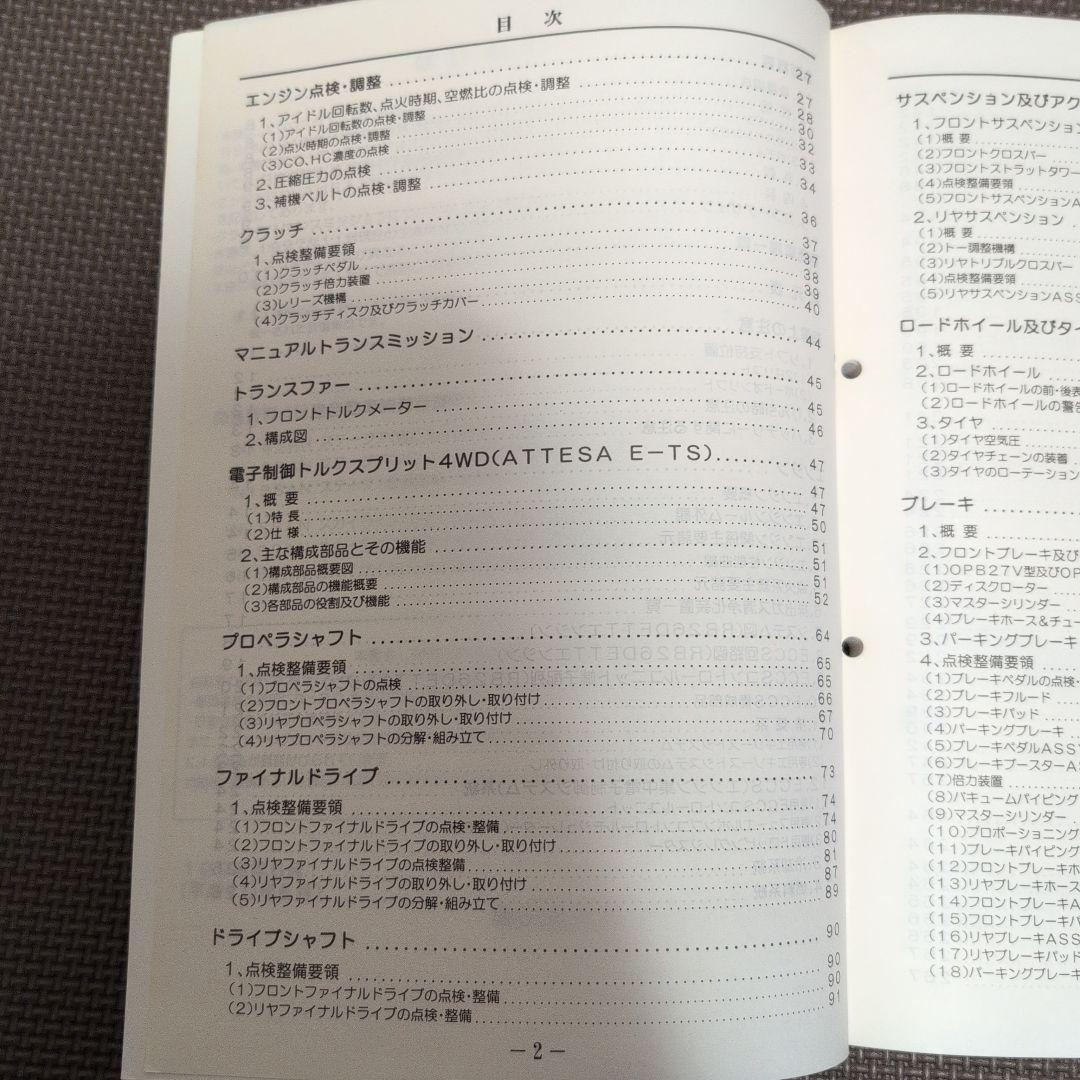 目 次
エンジン点検・調整 27
1、アイドル回転数、点火時期、空燃比の点検・調整 27
(1)アイドル回転数の点検・調整 28
(2)点火時期の点検・調整 30
(3)CO、HC濃度の点検 32
2、圧縮圧力の点検 33
3、補機ベルトの点検・調整 34
クラッチ 36
1、点検整備要領 37
(1)クラッチペダル 37
(2)クラッチ倍力装置 38
(3)レリーズ機構 39
(4)クラッチディスク及びクラッチカバー 40
マニュアルトランスミッション 44
トランスファー 45
1、フロントトルクメーター 45
2、構成図 46
電子制御トルクスプリット4WD(ATTESA E-TS) 47
1、概 要 47
(1)特 長 47
(2)仕 様 50
2、主な構成部品とその機能 51
(1)構成部品概要図 51
(2)構成部品の機能概要 51
(3)各部品の役割及び機能 52
プロペラシャフト 64
1、点検整備要領 65
(1)プロペラシャフトの点検 65
(2)フロントプロペラシャフトの取り外し・取り付け 66
(3)リヤプロペラシャフトの取り外し・取り付け 67
(4)リヤプロペラシャフトの分解・組み立て 70
ファイナルドライブ 73
1、点検整備要領 74
(1)フロントファイナルドライブの点検・整備 74
(2)フロントファイナルドライブの取り外し・取り付け 80
(3)リヤファイナルドライブの点検整備 81
(4)リヤファイナルドライブの取り外し・取り付け 87
(5)リヤファイナルドライブの分解・組み立て 89
ドライブシャフト 90
1、点検整備要領 90
(1)フロントファイナルドライブの点検・整備 90
(2)リヤファイナルドライブの点検・整備 91
— 2 —
サスペンション及びアク
1、フロントサスペンション
(1)概 要
(2)フロントクロスバー
(3)フロントストラットタワー
(4)点検整備要領
(5)フロントサスペンションA
2、リヤサスペンション
(1)概 要
(2)トー調整機構
(3)リヤトリプルクロスバー
(4)点検整備要領
(5)リヤサスペンションASS
ロードホイール及びタイ
1、概 要
2、ロードホイール
(1)ロードホイールの前・後表
(2)ロードホイールの警告
3、タイヤ
(1)タイヤ空気圧
(2)タイヤチェーンの装着
(3)タイヤのローテーション
ブレーキ
1、概 要
2、フロントブレーキ及び
(1)OPB27V型及びOP
(2)ディスクローター
(3)マスターシリンダー
(4)ブレーキホース&チュー
3、パーキングブレーキ
4、点検整備要領
(1)ブレーキペダルの点検・
(2)ブレーキフルード
(3)ブレーキパッド
(4)パーキングブレーキ
(5)ブレーキペダルASS
(6)ブレーキブースターA
(7)倍力装置
(8)バキュームパイピング
(9)マスターシリンダー
(10)プロポーショニング
(11)ブレーキパイピング
(12)フロントブレーキホ
(13)リヤブレーキホース
(14)フロントブレーキA
(15)フロントブレーキパ
(16)リヤブレーキASS
(17)リヤブレーキパッド
(18)パーキングブレーキ